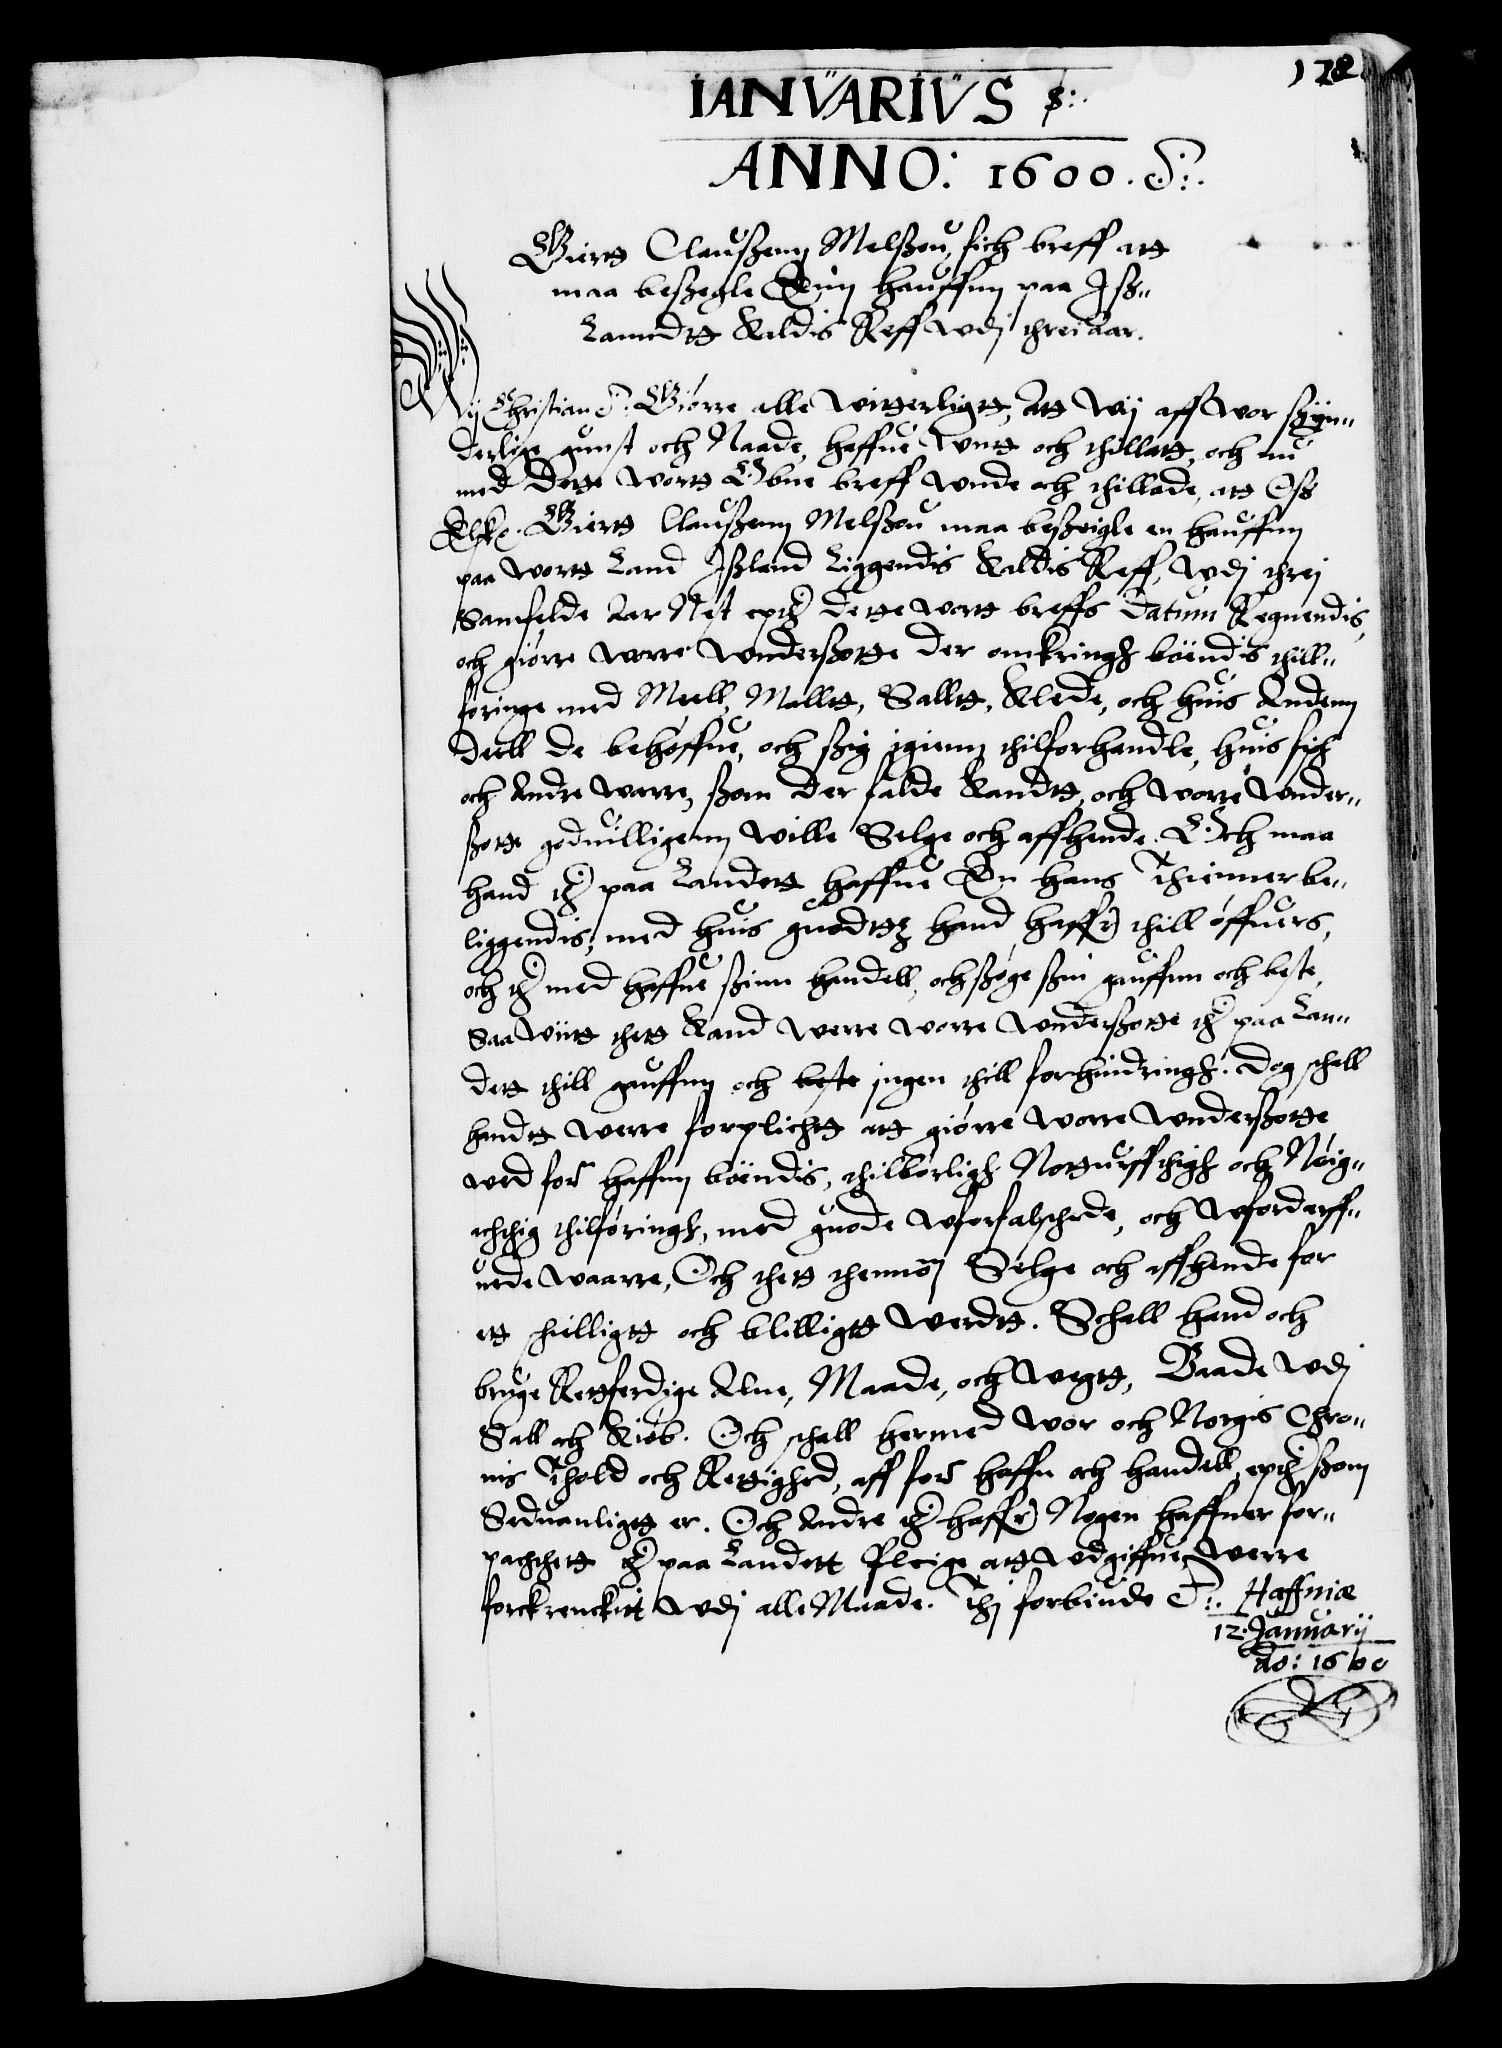 178
IANVARIVS
ANNO: 1600.
Giertt Claußenn Melßou, fich breff att
maa beßegle Enn hauffnn paa Iß-
Lanndtt Kaldis Reff wdj threi Aar.
Wij Christian Giörre alle witterligtt, Att wij aff wor sӱn-
derlige gunst och Naade, haffue wntt och thillatt, och nu
med Dette wortt Obne breff wnde och thillade, att Oss
Elsk: Giertt Claußenn Melßou maa beßeigle en hauffnn
paa wortt Land Ißland Liggendis Kaldis Reff, wdj threj
Samfelde Aar Nest epth dette wortt breffs Datum Regnendis,
och giörre worre wnderßotte der omkringh böendis thill-
föringe med Meell, Malltt, Salltt, Klede, och huis Andenn
deell de behöffue, och ßig igienn thilforhandle, huis fisk
och Andre warre, ßom der falde Kandtt, och worre wnder-
ßotte goduilligenn wille Selge och affhende. Och maa
hand th paa Landett haffue En hans Thienner be-
liggendis, med huis guodttz hand haffr thill öffuers,
och th med haffue ßinn handell, och ßöge ßin gauffnn och beste,
Saa wiitt thett Kand werre worre wnderßotte th paa Lan-
dett thill gauffnn och beste ingen thill forhindringh. Dog schall
handtt werre forplichtt att giörre worre wnderßotte
wed for haffnn böendis, thilbörligh Nottuifftigh och Nöig-
achtig thilföringh, med guode wforfalschede, och wforderff-
uede waarre, Och thett thennom Selge och affhende for
ett schielligtt och blilligtt werdtt. Schall hand och
bruge Rettferdige Alne, Maade, och wegtt, Baade wdj
Sall och Kiöb. Och schall hermed wor och Norgis Chro-
nis Thold och Rettighed, aff for haffn och handell, epth ßom
Seduanligtt er. Och Andre th haffr Nogen haffner for-
pachthett th paa Landett Pleige att wdgiffue, werre
forkrenckitt wdj alle Maade. Thj forbiude Haffniæ
12. Januarij
Ao: 1600